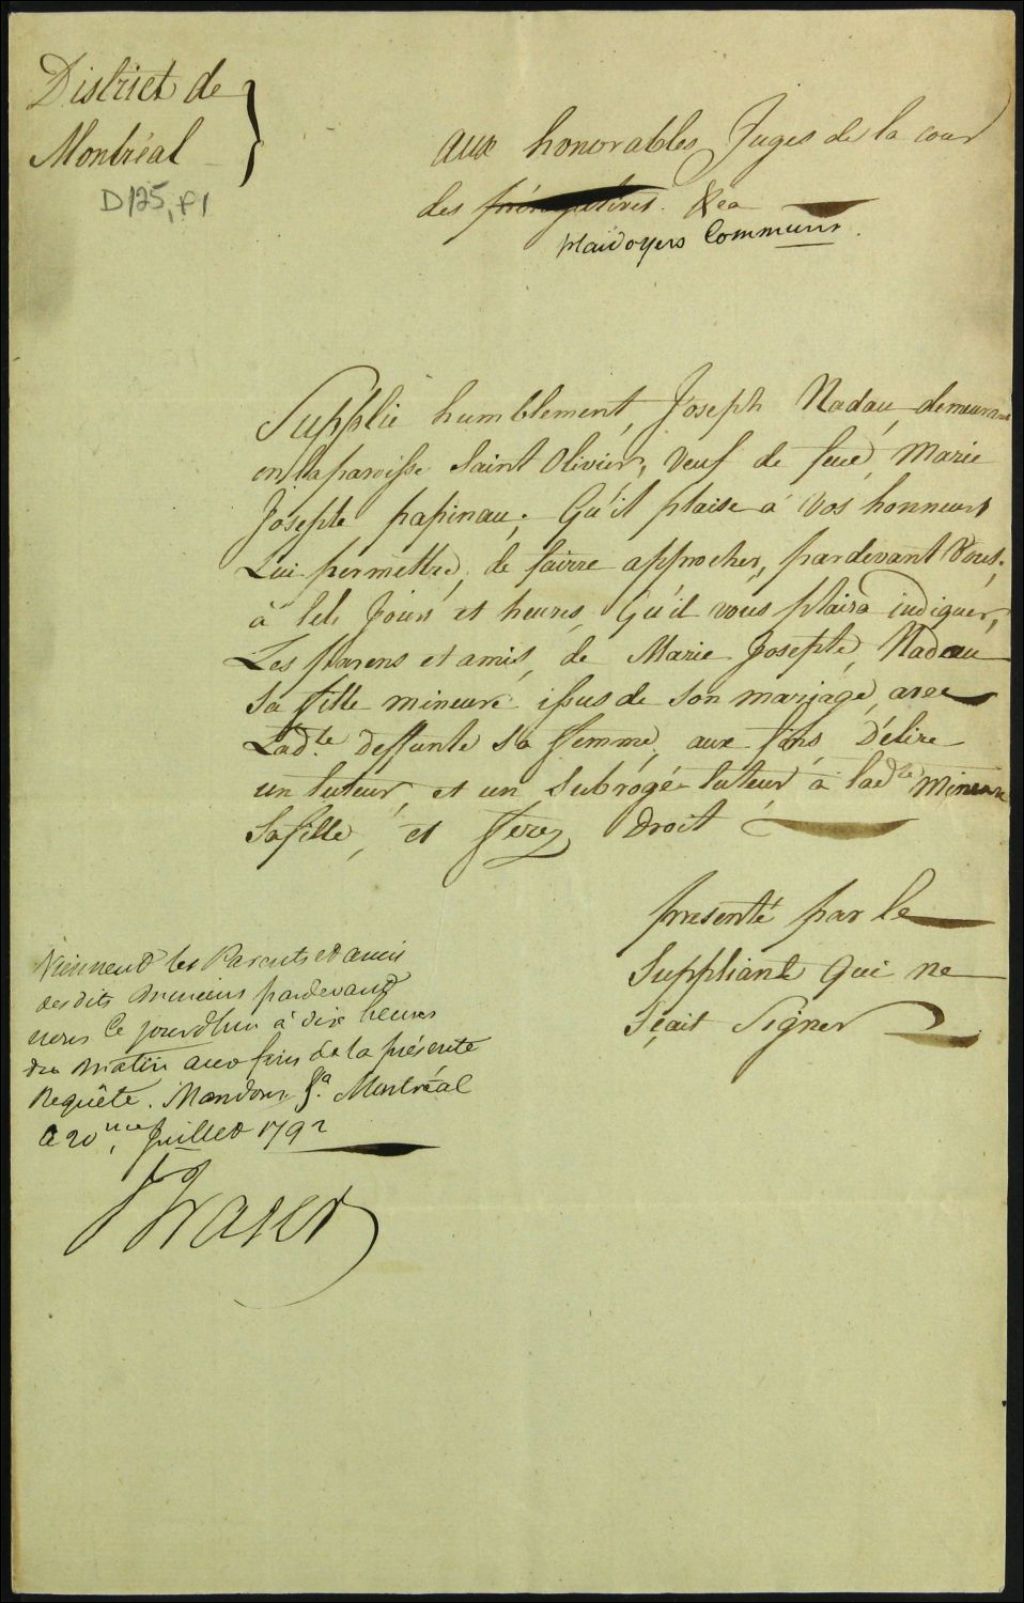 District de
Montréal
D125, f1
aux honorables Juges de la cour
des prérogatives. &ea
plaidoyers Communs.
Supplie humblement, Joseph Nadau, demeurant
en la paroisse Saint Olivier, Veuf de feue, Marie
Josephte papinau; Qu'il plaise à Vos honneurs
Lui permettre, de fairre approcher, pardevant Vous,
à tels Jours et heures, Qu'il vous plaira indiquer,
Les parens et amis, de Marie Josephte, Nadeau
sa fille mineure issus de son mariage, avec
Ladte deffunte sa femme, aux fins D'élire
un tuteur, et un Subrogé tuteur, à ladte Mineure
Sa fille, et ferez Droit
presenté par le
Suppliante Qui ne
Sçait Signer
Viennent les Parents et amis
des dits Mineurs pardevant
nous Ce jourdhui à dix heures
du Matin aux fins de la présente
Requête. Mandons &a. Montréal
Ce 20 Juillet 1792
Fraser